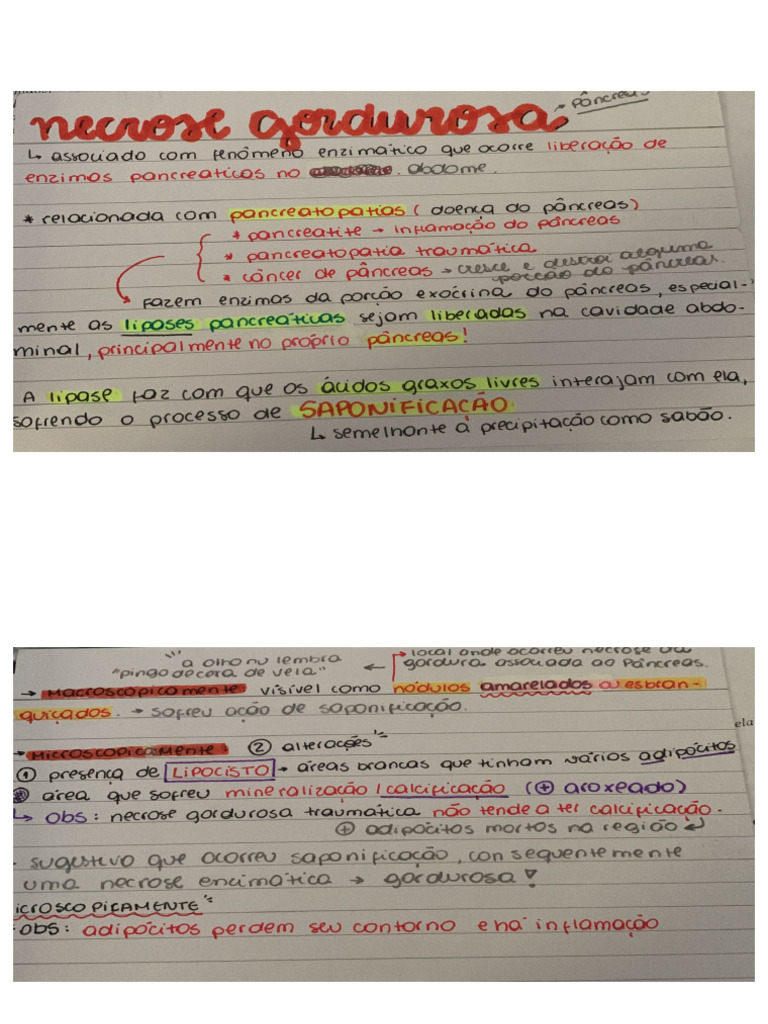 → Pâncreas
necrose gordurosa
↳ associado com fenômeno enzimático que ocorre liberação de
enzimas pancreaticas no abdome.
* relacionada com pancreatopatias (doença do pâncreas)
* pancreatite → inflamação do pâncreas
* pancreatopatia traumática
* câncer de pâncreas → cresce e destroi alguma
porção do pâncreas.
Fazem enzimas da porção exócrina do pâncreas, especial-
mente as lipases pancreáticas sejam liberadas na cavidade abdo-
minal, principalmente no próprio pâncreas!
A lipase faz com que os ácidos graxos livres interajam com ela,
sofrendo o processo de SAPONIFICAÇÃO
↳ semelhante à precipitação como sabão.
a olho nu lembra
"pingo de cera de vela"
← → local onde ocorreu necrose
gordura associada ao Pâncreas.
→ Macroscopicamente visível como nódulos amarelados ou esbran-
quiçados. → sofreu ação de saponificação.
ela
→ Microscopicamente: ② alterações
① presença de LIPOCISTO → áreas brancas que tinham vários adipócitos
② área que sofreu mineralização / calcificação (⊕ aroxeado)
↳ Obs: necrose gordurosa traumática não tende a ter calcificação.
⊕ adipócitos mortos na região ↵
. sugestivo que ocorreu saponificação, consequentemente
uma necrose encimática → gordurosa!
icroscopicamente
. obs: adipócitos perdem seu contorno e há inflamação